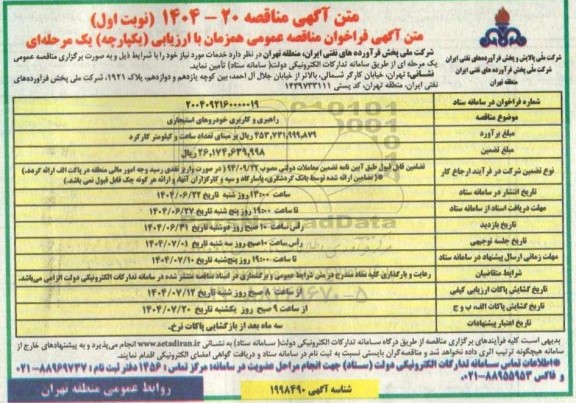 متن آگهی مناقصه ۲۰ - ۱۴۰۴ (نوبت اول)
متن آگهی فراخوان مناقصه عمومی همزمان با ارزیابی (یکپارچه) یک مرحله‌ای
شرکت ملی پالایش و پخش فرآورده‌های نفتی ایران
شرکت ملی پخش فرآورده‌های نفتی ایران
منطقه تهران
شرکت ملی پخش فرآورده های نفتی ایران، منطقه تهران در نظر دارد خدمات مورد نیاز خود را با شرایط ذیل و به صورت برگزاری مناقصه عمومی
یک مرحله ای از طریق سامانه تدارکات الکترونیکی دولت( سامانه ستاد) تأمین نماید.
نشانی: تهران، خیابان کارگر شمالی، بالاتر از خیابان جلال آل احمد، بین کوچه یازدهم و دوازدهم، پلاک ۱۹۲۱، شرکت ملی پخش فرآورده‌های
نفتی ایران، منطقه تهران، کد پستی ۱۴۳۹۷۳۳۱۱۱
شماره فراخوان در سامانه ستاد ۲۰۰۴۰۹۲۱۶۰۰۰۰۰۱۹
موضوع مناقصه راهبری و کاربری خودروهای استیجاری
مبلغ برآورد ۴۵۳,۷۳۱,۹۹۹,۸۷۹ ریال بر مبنای تعداد ساعت و کیلومتر کارکرد
مبلغ تضمین ۲۶,۱۷۴,۶۳۹,۹۹۸ ریال
نوع تضمین شرکت در فرآیند ارجاع کار تضامین قابل قبول طبق آیین نامه تضمین معاملات دولتی مصوب ۹۴/۰۹/۲۲ ( در صورت واریز نقدی رسید وجه امور مالی منطقه در پاکت الف ارائه گردد.)
(تضامین ارائه شده توسط بانک گردشگری، پاسارگاد و سپه و کارگزاران آنها و ارائه هر گونه چک قابل قبول نمی باشد.)
تاریخ انتشار در سامانه ستاد ساعت ۱۳:۰۰ روز شنبه تاریخ ۱۴۰۴/۰۶/۲۲
مهلت دریافت اسناد از سامانه ستاد تا ساعت ۱۹:۰۰ روز پنج شنبه تاریخ ۱۴۰۴/۰۶/۲۷
تاریخ بازدید رأس ساعت ۱۰ صبح روز دوشنبه تاریخ ۱۴۰۴/۰۶/۳۱
تاریخ جلسه توجیهی رأس ساعت ۱۰ صبح روز سه شنبه تاریخ ۱۴۰۴/۰۷/۰۱
مهلت زمانی ارسال پیشنهاد در سامانه ستاد تا ساعت ۱۹:۰۰ روز پنج‌شنبه تاریخ ۱۴۰۴/۰۷/۱۰
شرایط متقاضیان رعایت و بارگذاری کلیه مفاد مندرج در متن شرایط عمومی و برگشماری در اسناد مناقصه منتشر شده در سامانه تدارکات الکترونیکی دولت الزامی می‌باشد.
تاریخ گشایش پاکات ارزیابی کیفی از ساعت ۸ صبح روز شنبه تاریخ ۱۴۰۴/۰۷/۱۲
تاریخ گشایش پاکات الف، ب و ج از ساعت ۹ صبح روز یکشنبه تاریخ ۱۴۰۴/۰۷/۲۰
تاریخ اعتبار پیشنهادات سه ماه بعد از بازگشایی پاکات نرخ.
بدیهی است کلیه فرآیندهای برگزاری مناقصه از طریق درگاه سامانه تدارکات الکترونیکی دولت( سامانه ستاد) به نشانی www.setadiran.ir انجام می‌پذیرد و به پیشنهادهای خارج از
سامانه هیچگونه ترتیب اثری داده نخواهد شد و مناقصه‌گران بایستی نسبت به ثبت نام در سامانه ستاد و دریافت گواهی امضای الکترونیکی اقدام نمایند.
اطلاعات تماس سامانه تدارکات الکترونیکی دولت (ستاد) جهت انجام مراحل عضویت در سامانه: مرکز تماس: ۱۴۵۶ دفتر ثبت نام: ۸۸۹۶۹۷۳۷-۰۲۱
و فاکس ۸۸۹۵۵۹۵۳-۰۲۱.
شناسه آگهی ۱۹۹۸۴۹۰
روابط عمومی منطقه تهران